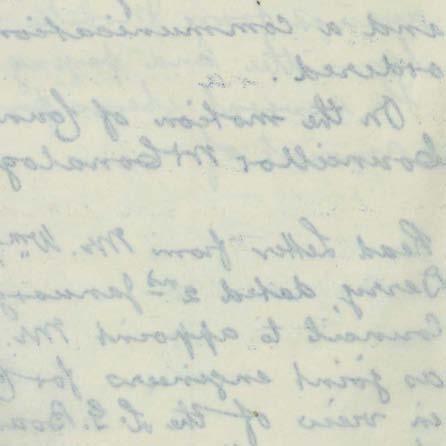 and a communication
ordered.
On the motion of Coun
Councillor McGonagl
Read letter from Mr. Wm.
Derry, dated 2nd January
Council to appoint Mr.
as joint engineers for
in view of the L. G. Boa